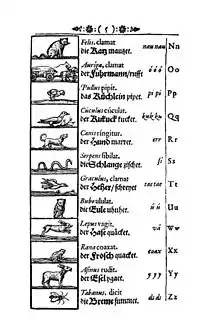 ( 5 )
Felis, clamat nau nau Nn
die Katz mautzet.
Auriga, clamat ó ó ó Oo
der Fuhrmann/ ruffet
Pullus pipit. pi pi Pp
das Küchlein pipet.
Cúculus cúculat. kuk ku Qq
der Kukuck kucket.
Canis ringitur. err Rr
der Hund marret.
Serpens sibilat. si Ss
die Schlange zischet.
Graculus, clamat tac tac Tt
der Heher/ schreyet
Bubo ululat. ú ú Uu
die Eule uhuhet.
Lepus vagit. vá Ww
der Hase quäcket.
Rana coaxat. coax Xx
der Frosch quacket.
Asinus rudit. y y y Yy
der Esel ygaet.
Tabanus, dicit ds ds Zz
die Breme summet.